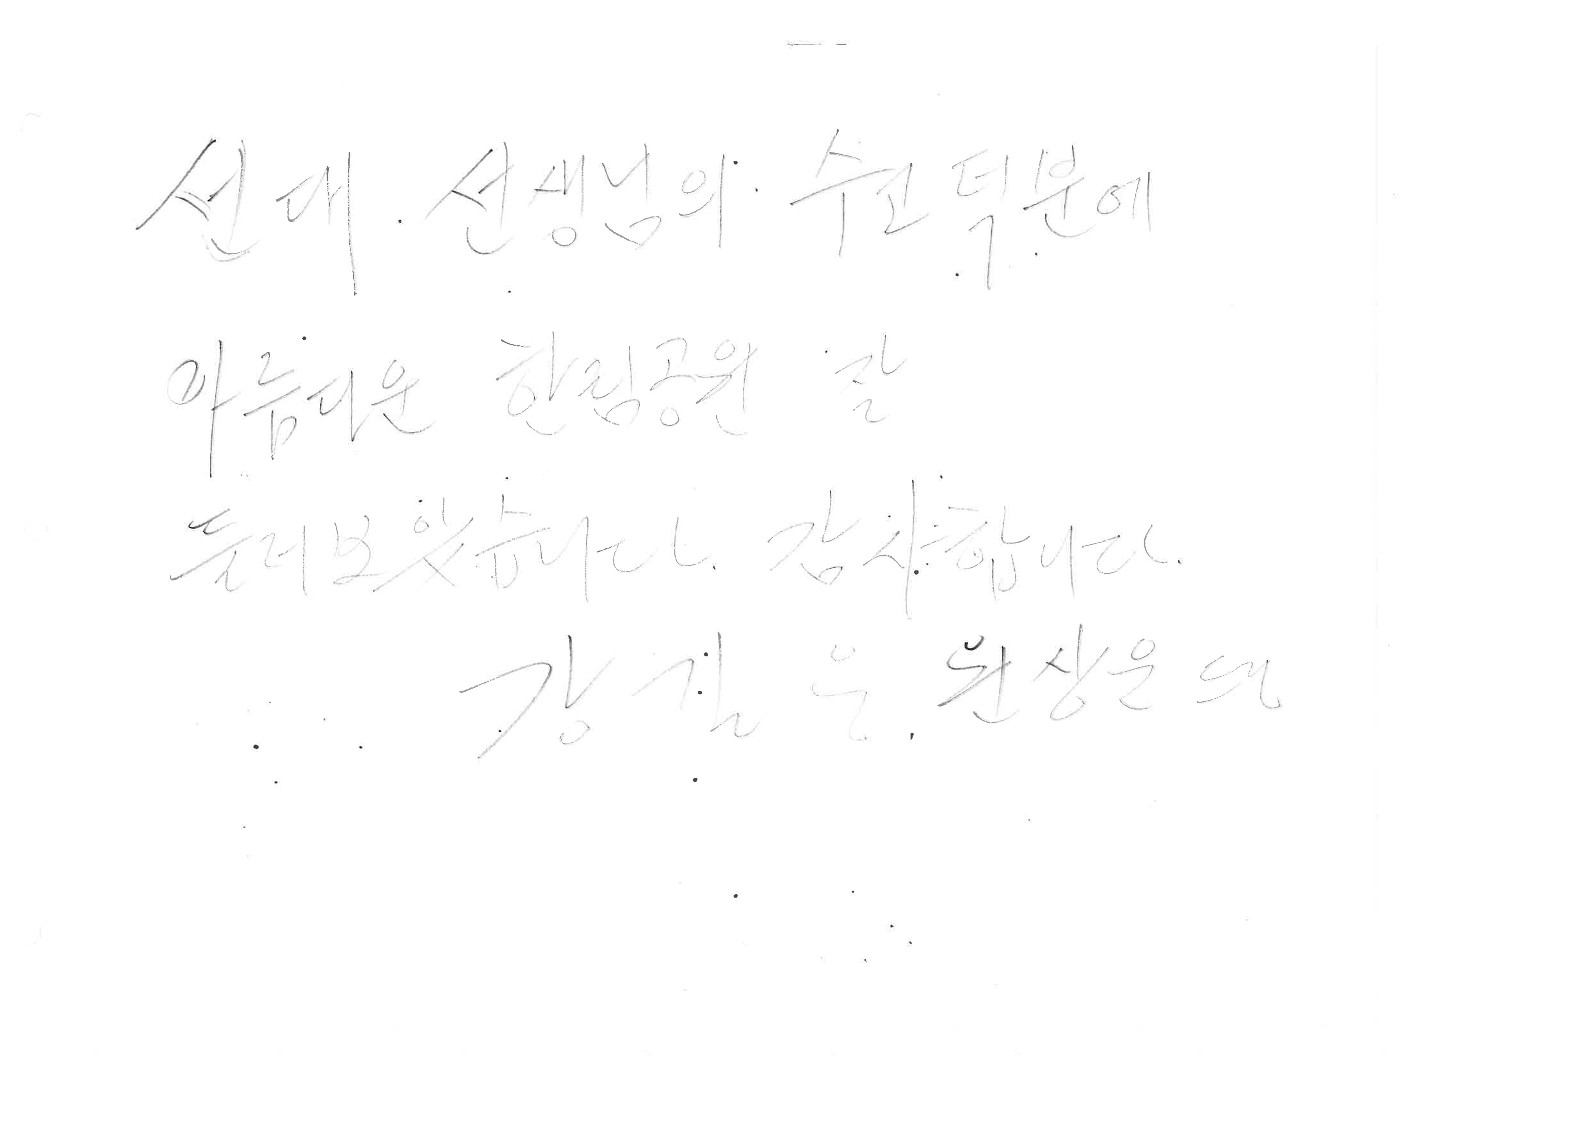 선대 선생님의 수고 덕분에
아름다운 한림공원 잘
둘러보았습니다. 감사합니다.
강길운, 원상운